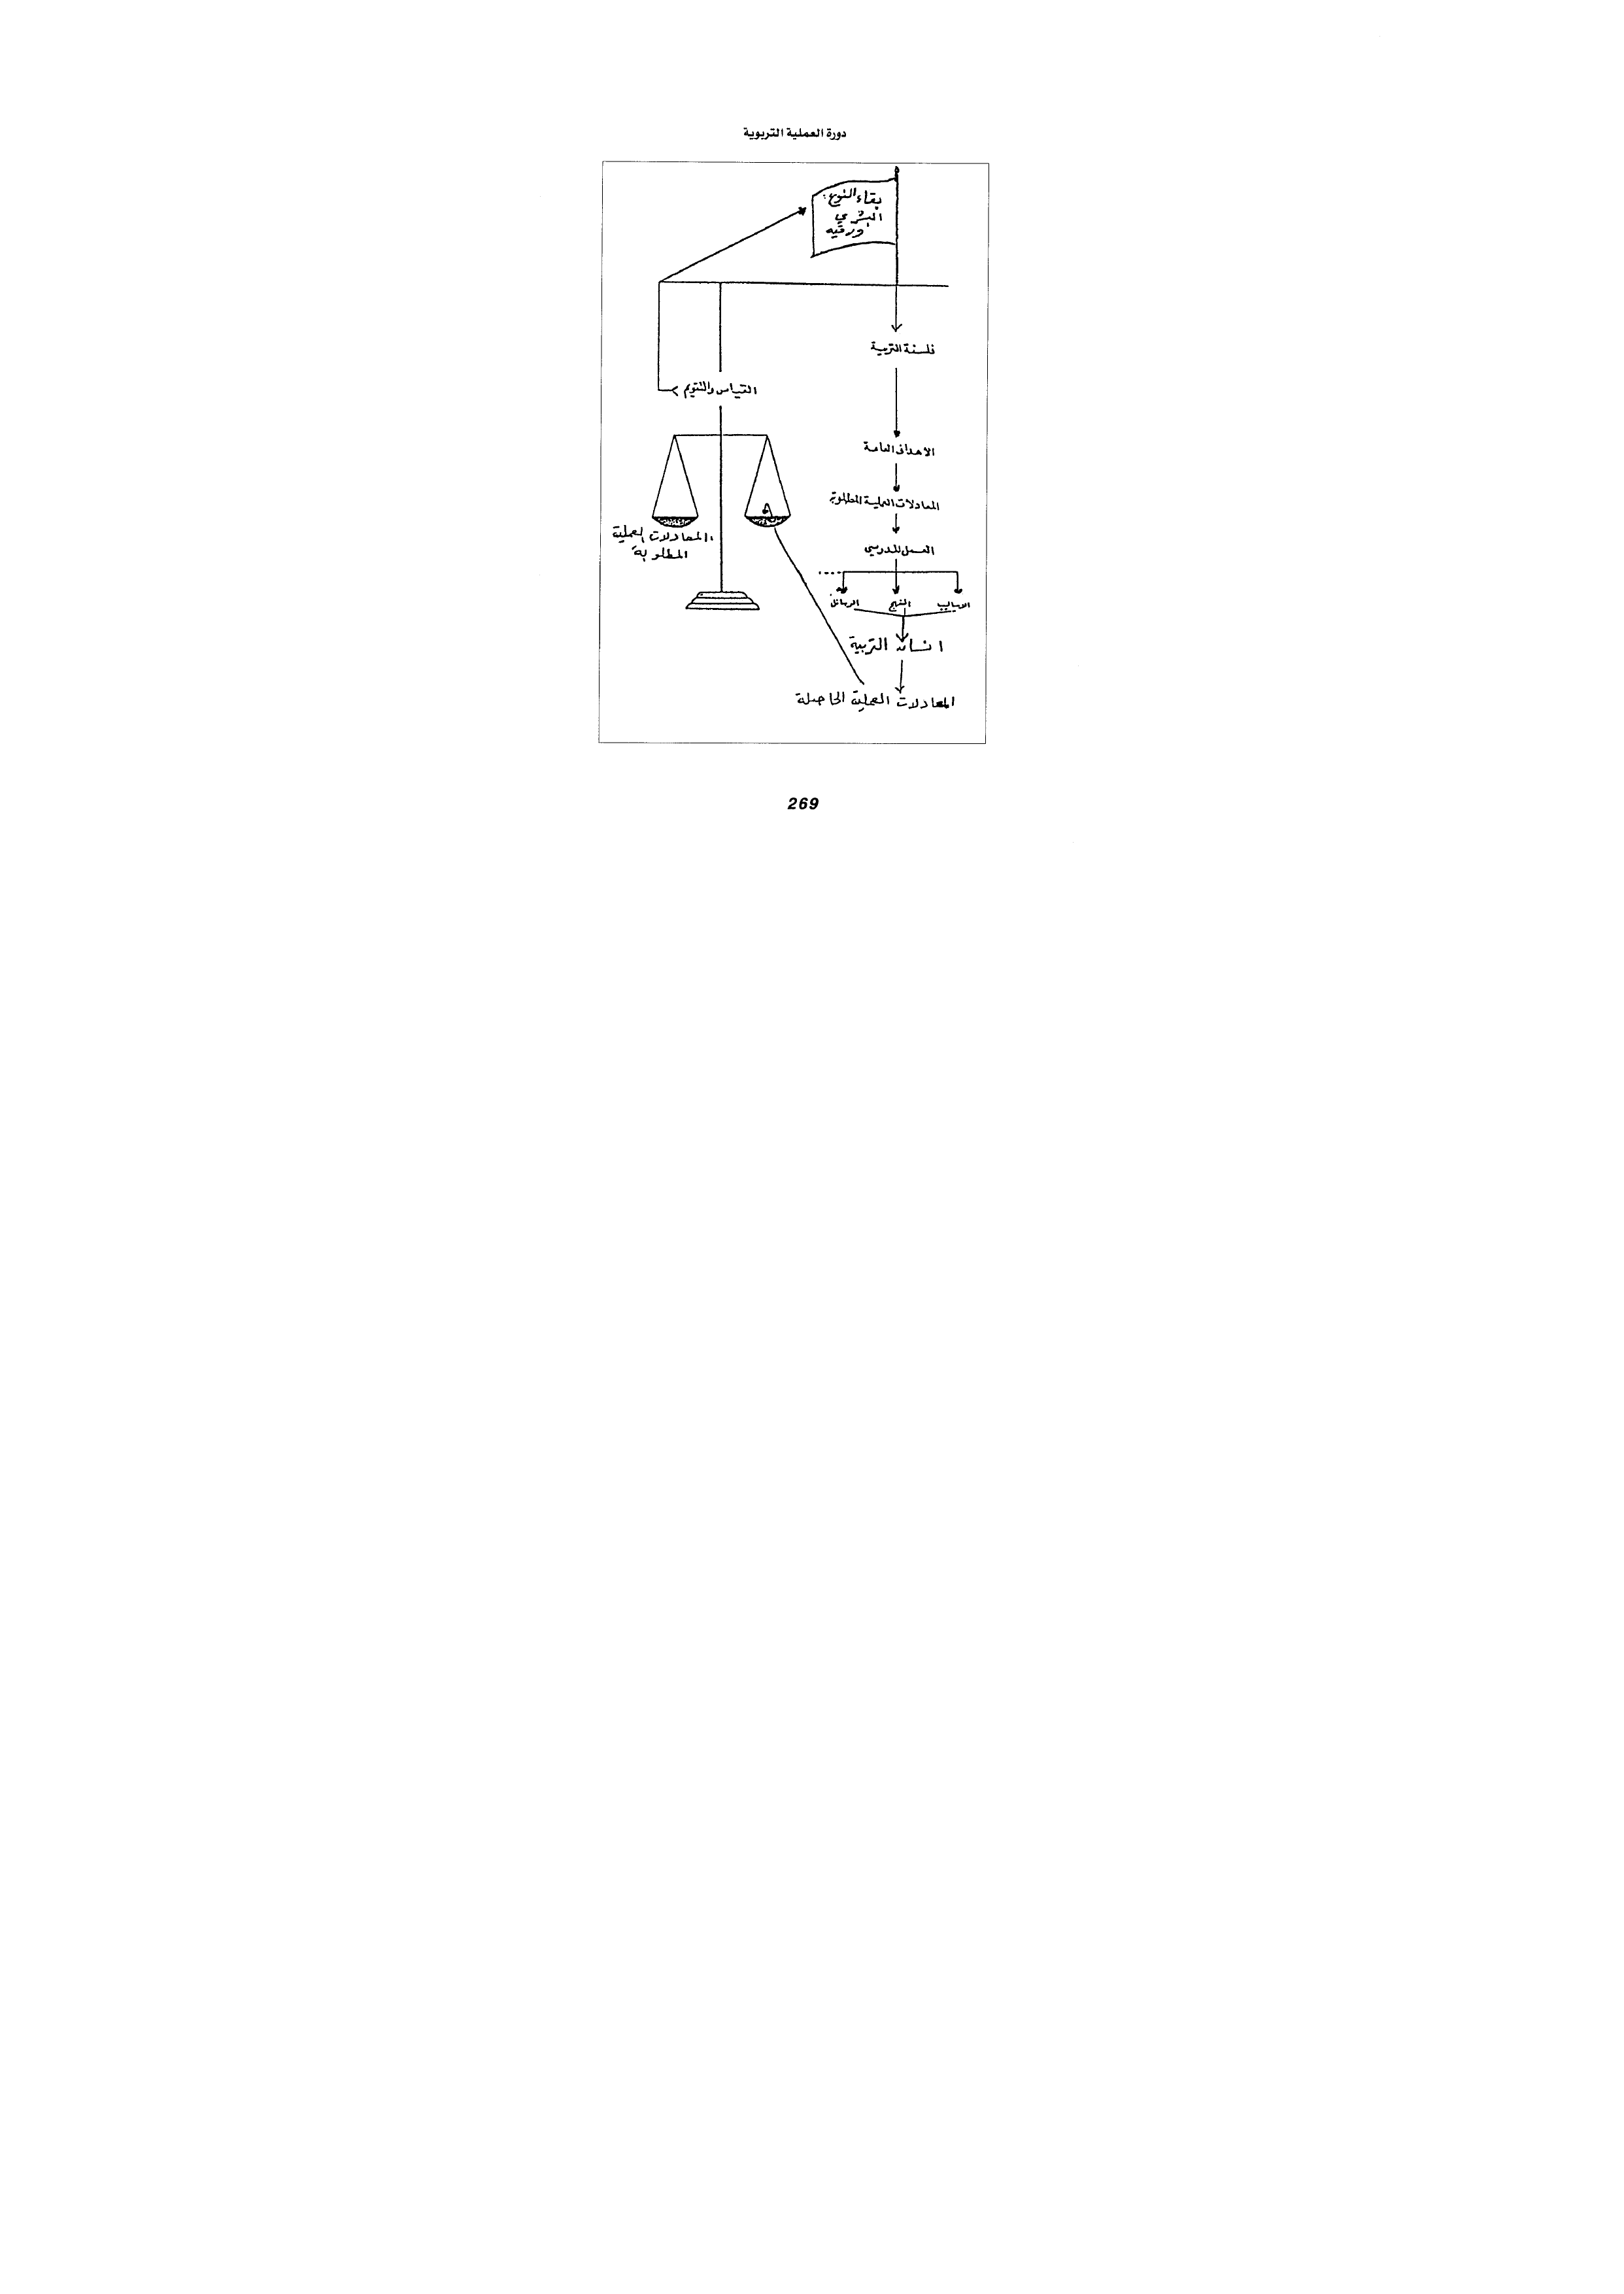 دورة العملية التربوية
بقاء النوع
البشري
ورقيه
فلسفة التربية
القياس والتقويم
الأهداف العامة
المعادلات العملية المطلوبة
العمل المدرسي
الاساليب
المنهج
الوسائل
المعادلات العملية
المطلوبة
انسان التربية
المعادلات العملية الحاصلة
269